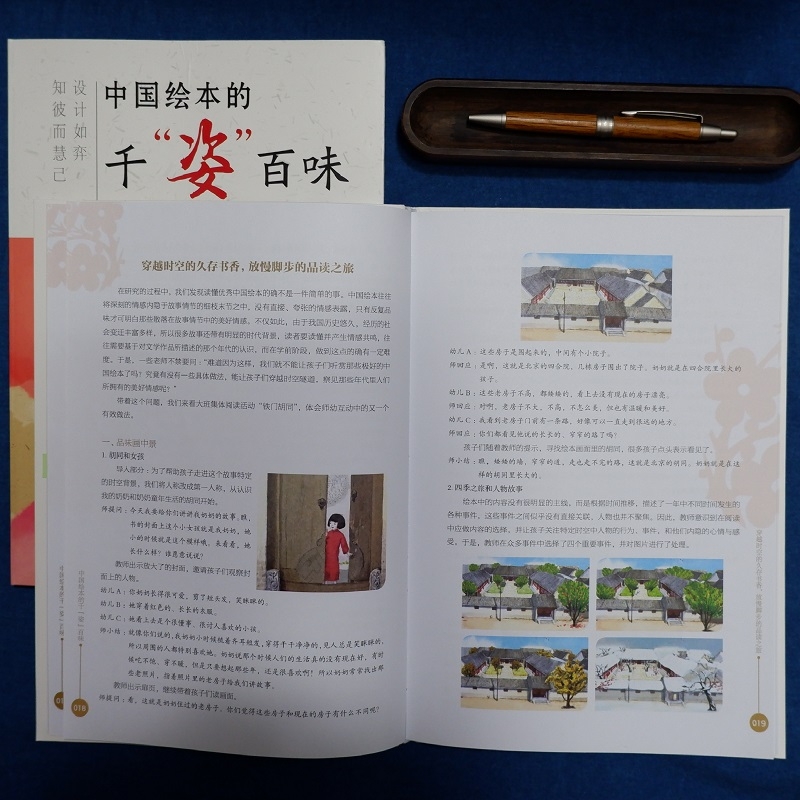 设计如弈
知彼而慧己
中国绘本的
千“姿”百味
穿越时空的久存书香，放慢脚步的品读之旅
在研究的过程中，我们发现读懂优秀中国绘本的确不是一件简单的事。中国绘本往往
将深刻的情感内隐于故事情节的细枝末节之中，没有直接、夸张的情感表露，只有反复品
味才可明白那些散落在故事情节中的美好情感。不仅如此，由于我国历史悠久，经历的社
会变迁丰富多样，所以很多故事还带有明显的时代背景，读者要读懂并产生情感共鸣，往
往需要基于对文学作品所描述的那个年代的认识。而在学前阶段，做到这点的确有一定难
度。于是，一些老师不禁要问：“难道因为这样，我们就不能让孩子们听赏那些极好的中
国绘本了吗？究竟有没有一些具体做法，能让孩子们穿越时空隧道，察见那些年代里人们
所拥有的美好情感呢？”
带着这个问题，我们来看大班集体阅读活动“铁门胡同”，体会师幼互动中的又一个
有效做法。
一、品味画中景
1. 胡同和女孩
导入部分：为了帮助孩子走进这个故事特定
的时空背景，我们将人称改成第一人称，从认识
我的奶奶和奶奶童年生活的胡同开始。
师提问：今天我要给你们讲讲我奶奶的故事。瞧，
书的封面上这个小女孩就是我奶奶，她
小的时候就是这个模样哦。来看看，她
长什么样？谁愿意说说？
教师出示放大了的封面，邀请孩子们观察封
面上的人物。
幼儿 A：你奶奶长得很可爱，剪了短头发，笑眯眯的。
幼儿 B：她穿着红色的、长长的衣服。
幼儿 C：她看上去是个很懂事、很讨人喜欢的小孩。
师小结：就像你们说的，我奶奶小时候梳着齐耳短发，穿得干干净净的，见人总是笑眯眯的，
所以周围的人都特别喜欢她。奶奶说那个时候人们的生活真的没有现在好，有时
候吃不饱、穿不暖，但是只要想起那些年，还是很喜欢啊！所以奶奶常常找出那
些老照片，指着照片里的老房子给我们讲故事。
教师出示扉页，继续带着孩子们读画面。
师提问：看，这就是奶奶住过的老房子。你们觉得这些房子和现在的房子有什么不同呢？
中国绘本的千“姿”百味
018
幼儿 A：这些房子是围起来的，中间有个小院子。
师回应：是啊，这就是北京的四合院。几栋房子围出了院子，奶奶就是在四合院里长大的
孩子。
幼儿 B：这些老房子不高，都矮矮的，看上去没有现在的房子漂亮。
师回应：对啊，老房子不大、不高、不怎么美，但也有温暖和美好。
幼儿 C：我看到老房子门前有一条路，好像可以一直走到很远的地方。
师回应：你们都看见他说的长长的、窄窄的路了吗？
孩子们随着教师的提示，寻找绘本画面里的胡同，很多孩子点头表示看见了。
师小结：瞧，矮矮的墙，窄窄的道，走也走不完的路，这就是北京的胡同。奶奶就是在这
样的胡同里长大的。
2. 四季之旅和人物故事
绘本中的内容没有很明显的主线，而是根据时间推移，描述了一年中不同时间发生的
各种事件，这些事件之间似乎没有直接关联，人物也并不聚焦。因此，教师意识到在阅读
中应做内容的选择，并让孩子关注特定时空中人物的行为、事件，和他们内隐的心情与感
受。于是，教师在众多事件中选择了四个重要事件，并对图片进行了处理。
穿越时空的久存书香，放慢脚步的品读之旅
019